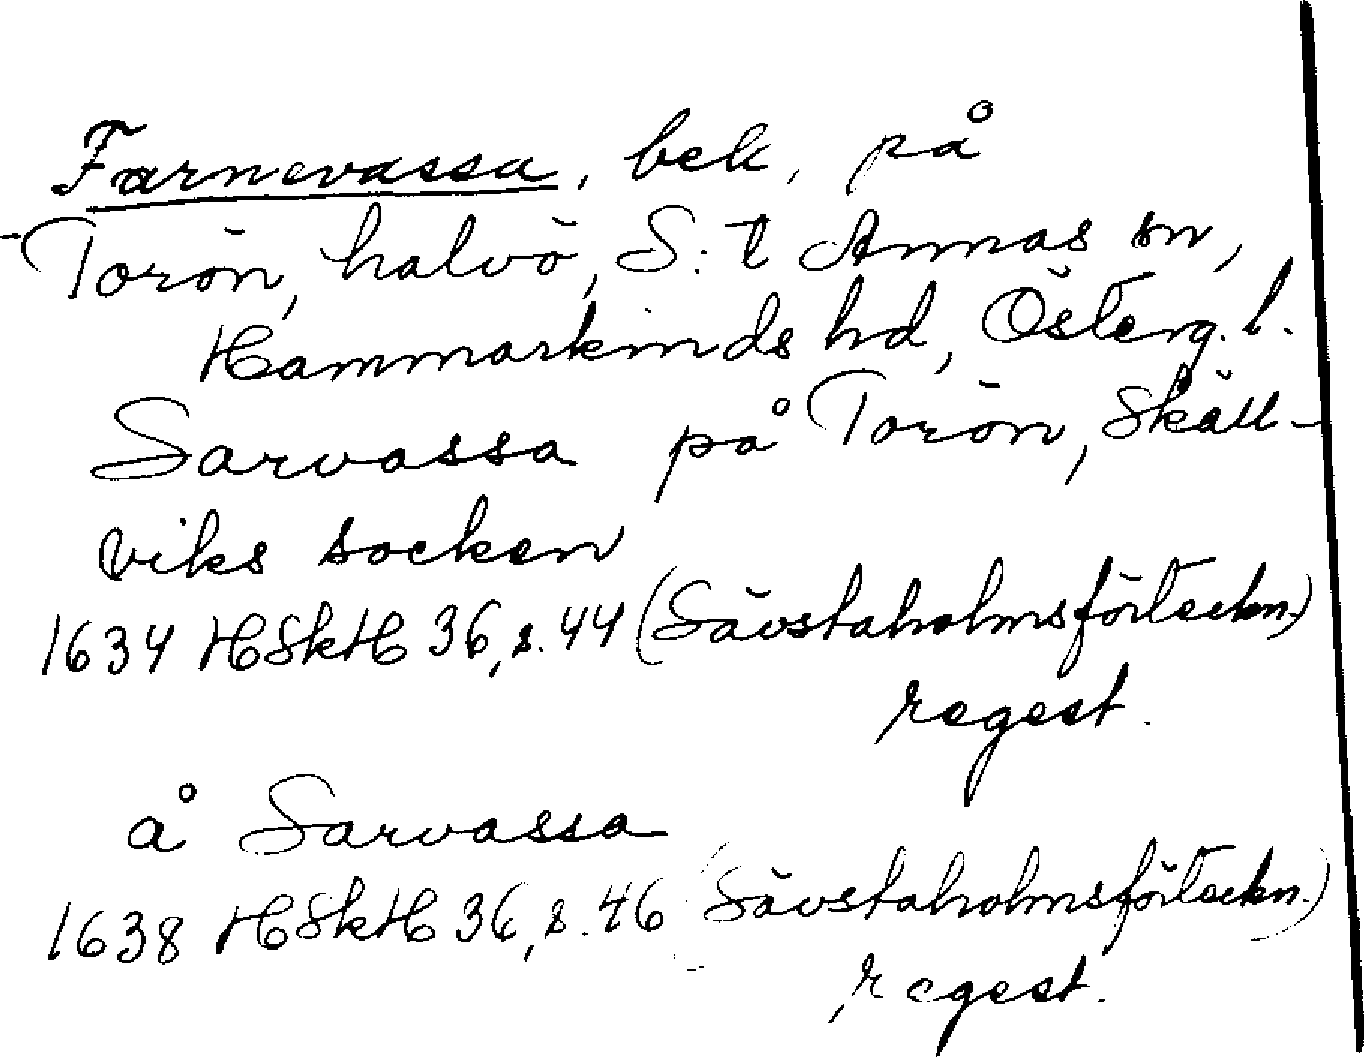 Farnevassa, bel. på
Torön, halvö, S:t Annas sn,
Hammarkinds hd, Österg. l.
Sarvassa på Torön, Skäll-
viks socken
1634 HSkH 36, s. 44 (Sävstaholmsförteckn.)
regest.
å Sarvassa
1638 HSkH 36, s. 46 (Sävstaholmsförteckn.)
regest.